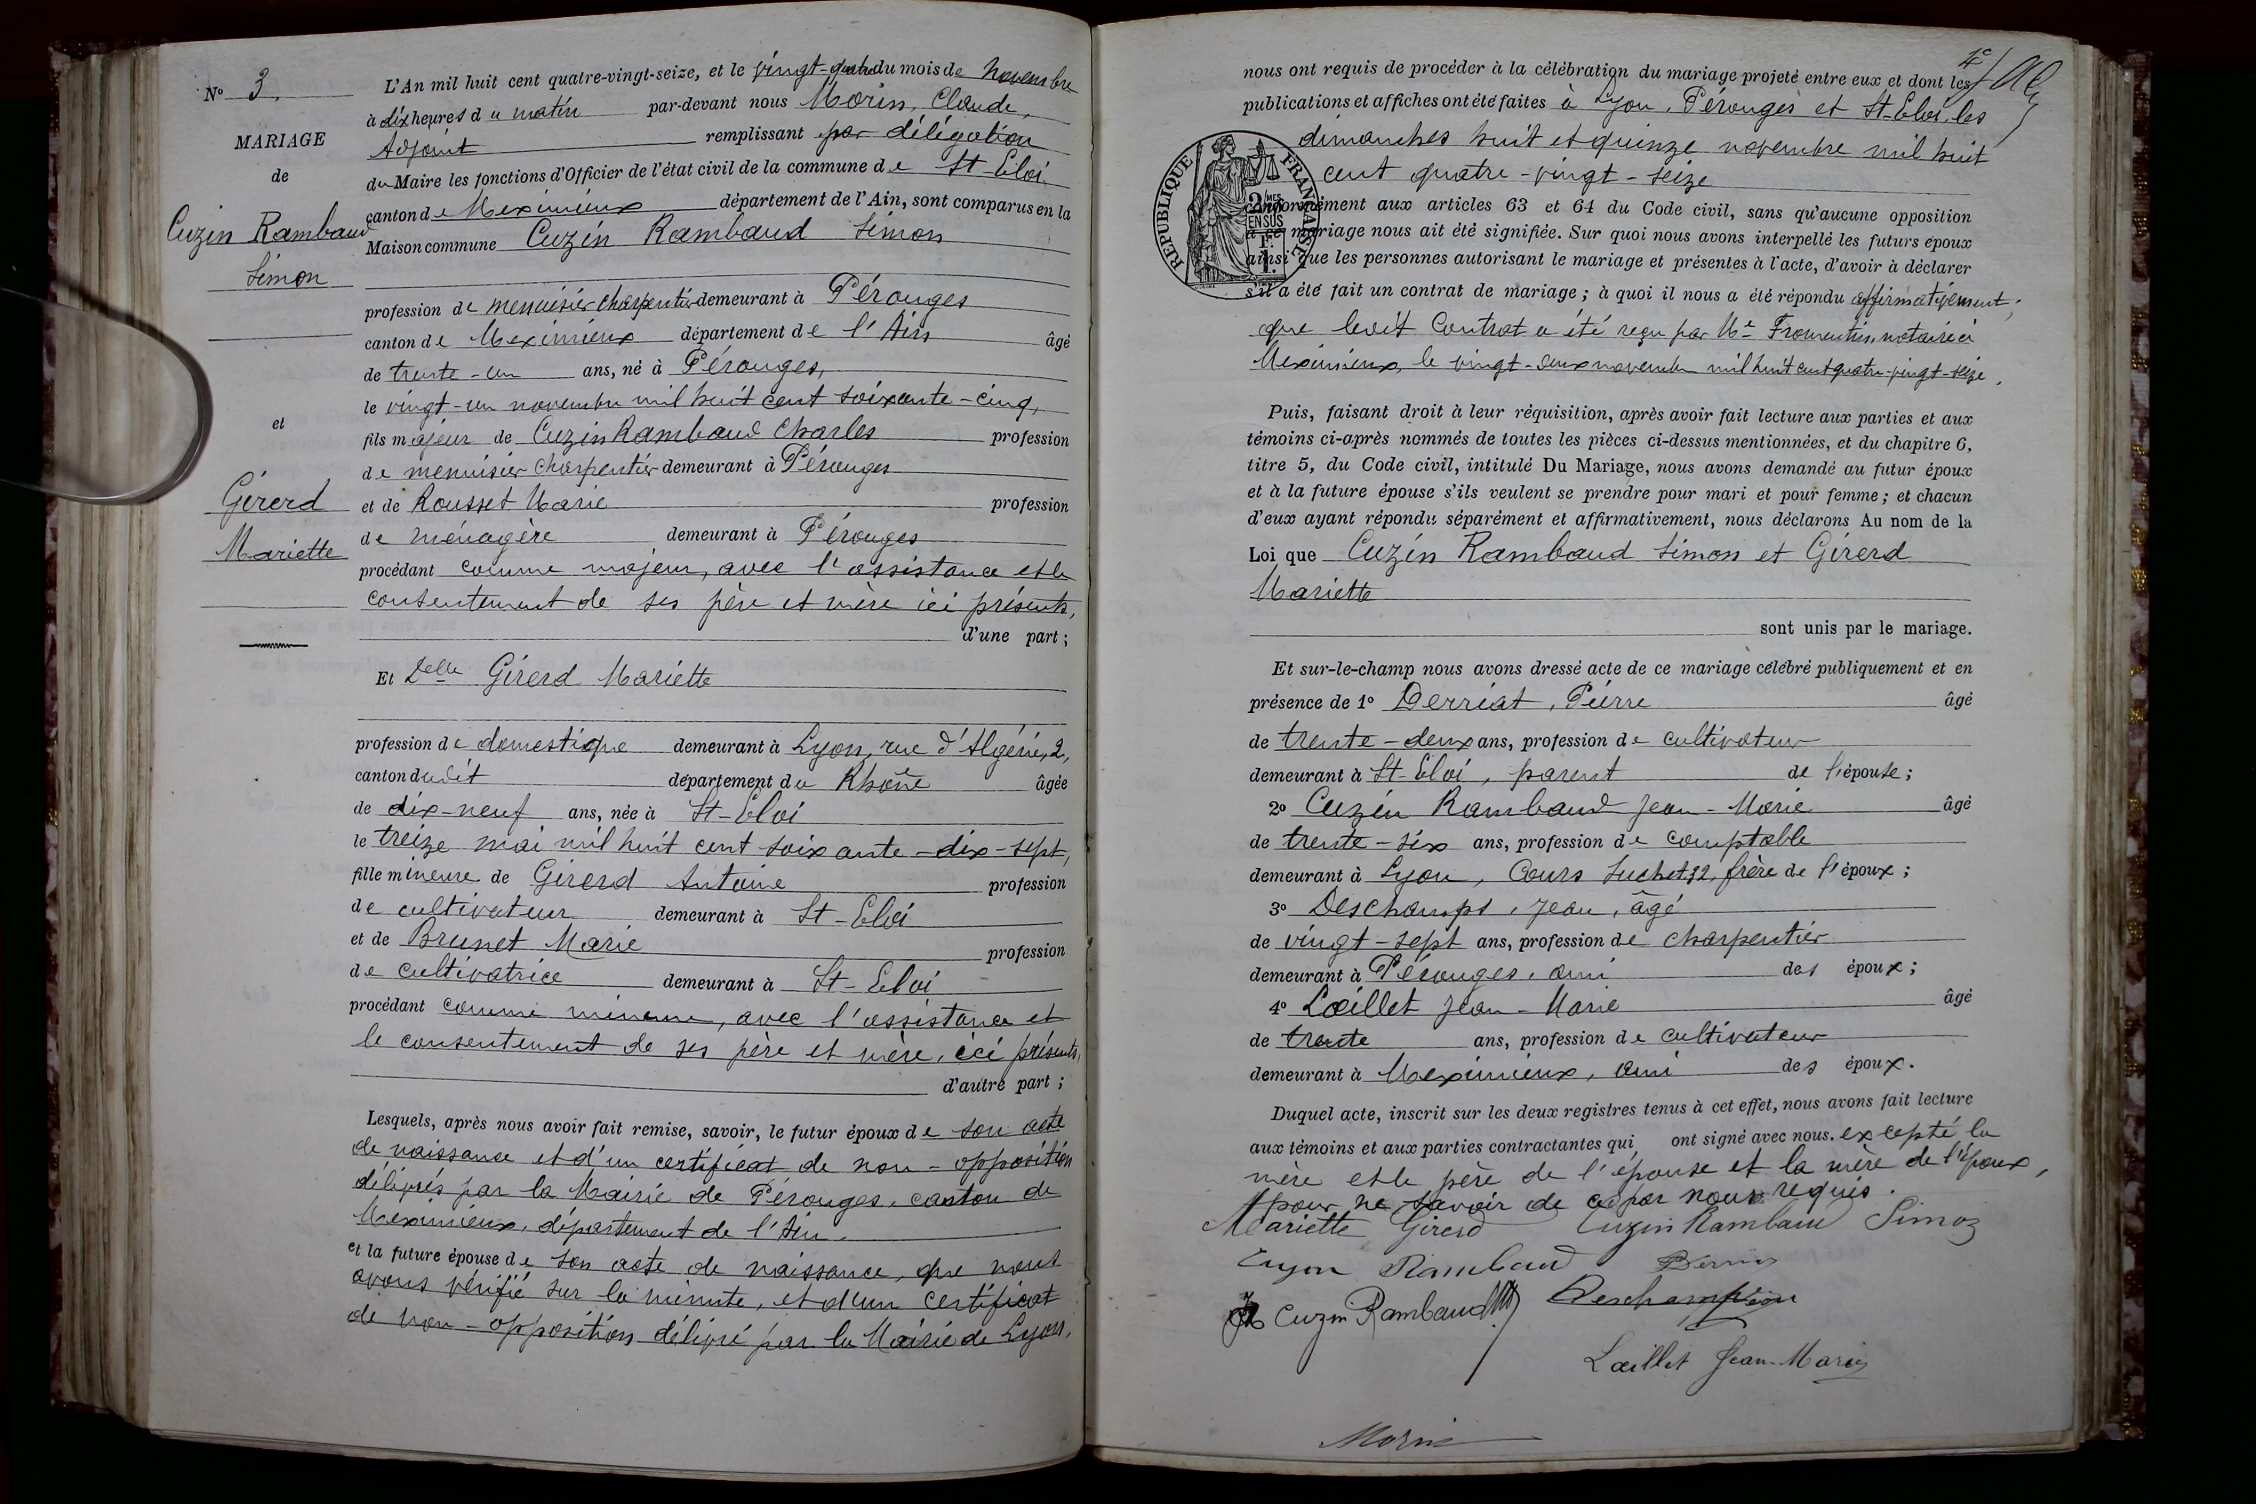 N° 3.
MARIAGE
de
Cuzin Rambaud
Simon
et
Girerd
Mariette
L'An mil huit cent quatre-vingt-seize, et le vingt-quatre du mois de novembre
à dix heures du matin par-devant nous Morin, Claude,
Adjoint remplissant par délégation
du Maire les fonctions d'Officier de l'état civil de la commune de St-Eloi
canton de Meximieux département de l'Ain, sont comparus en la
Maison commune Cuzin Rambaud Simon
profession de menuisier charpentier demeurant à Pérouges
canton de Meximieux département de l'Ain âgé
de trente-un ans, né à Pérouges,
le vingt-un novembre mil huit cent soixante-cinq,
fils majeur de Cuzin Rambaud Charles profession
de menuisier charpentier demeurant à Pérouges
et de Rousset Marie profession
de ménagère demeurant à Pérouges
procédant comme majeur, avec l'assistance et le
consentement de ses père et mère ici présents,
d'une part ;
Et Delle Girerd Mariette
profession de domestique demeurant à Lyon, rue d'Algérie, 2,
canton dudit département du Rhône âgée
de dix-neuf ans, née à St-Eloi
le treize mai mil huit cent soixante-dix-sept,
fille mineure de Girerd Antoine profession
de cultivateur demeurant à St-Eloi
et de Brunet Marie profession
de cultivatrice demeurant à St-Eloi
procédant comme mineure, avec l'assistance et
le consentement de ses père et mère, ici présents,
d'autre part ;
Lesquels, après nous avoir fait remise, savoir, le futur époux de son acte
de naissance et d'un certificat de non-opposition
délivrés par la Mairie de Pérouges, canton de
Meximieux, département de l'Ain.
et la future épouse de son acte de naissance, que nous
avons vérifié sur la minute, et d'un certificat
de non-opposition délivré par la Mairie de Lyon,
nous ont requis de procéder à la célébration du mariage projeté entre eux et dont les
publications et affiches ont été faites à Lyon, Pérouges et St-Eloi, les
dimanches huit et quinze novembre mil huit
cent quatre-vingt-seize
RÉPUBLIQUE FRANÇAISE
2/MES EN SUS
conformément aux articles 63 et 64 du Code civil, sans qu'aucune opposition
à ce mariage nous ait été signifiée. Sur quoi nous avons interpellé les futurs époux
ainsi que les personnes autorisant le mariage et présentes à l'acte, d'avoir à déclarer
s'il a été fait un contrat de mariage ; à quoi il nous a été répondu affirmativement ;
que ledit Contrat a été reçu par Me Fromentin, notaire à
Meximieux, le vingt-deux novembre mil huit cent quatre-vingt-seize.
Puis, faisant droit à leur réquisition, après avoir fait lecture aux parties et aux
témoins ci-après nommés de toutes les pièces ci-dessus mentionnées, et du chapitre 6,
titre 5, du Code civil, intitulé Du Mariage, nous avons demandé au futur époux
et à la future épouse s'ils veulent se prendre pour mari et pour femme ; et chacun
d'eux ayant répondu séparément et affirmativement, nous déclarons Au nom de la
Loi que Cuzin Rambaud Simon et Girerd
Mariette
sont unis par le mariage.
Et sur-le-champ nous avons dressé acte de ce mariage célébré publiquement et en
présence de 1° Derriat, Pierre âgé
de trente-deux ans, profession de cultivateur
demeurant à St-Eloi, parent de l'épouse ;
2° Cuzin Rambaud Jean-Marie âgé
de trente-six ans, profession de comptable
demeurant à Lyon, Cours Suchet, 32, frère de l'époux ;
3° Deschamps, Jean, âgé
de vingt-sept ans, profession de charpentier
demeurant à Pérouges, ami des époux ;
4° Lœillet Jean-Marie âgé
de trente ans, profession de cultivateur
demeurant à Meximieux, ami des époux.
Duquel acte, inscrit sur les deux registres tenus à cet effet, nous avons fait lecture
aux témoins et aux parties contractantes qui ont signé avec nous. excepté la
mère et le père de l'épouse et la mère de l'époux,
pour ne savoir de ce par nous requis.
Mariette Girerd Cuzin Rambaud Simon
Rambaud
Cuzin Rambaud Deschamps Jean
Lœillet Jean-Marie
Morin